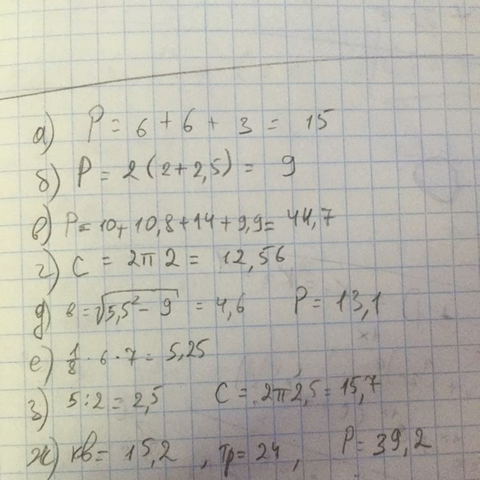 а) P = 6 + 6 + 3 = 15
б) P = 2 (2 + 2,5) = 9
в) P = 10 + 10,8 + 14 + 9,9 = 44,7
г) C = 2π 2 = 12,56
д) в = √5,5² - 9 = 4,6 P = 13,1
е) 1/8 · 6 · 7 = 5,25
з) 5 : 2 = 2,5 C = 2π 2,5 = 15,7
ж) кв = 15,2 , тр = 24 , P = 39,2